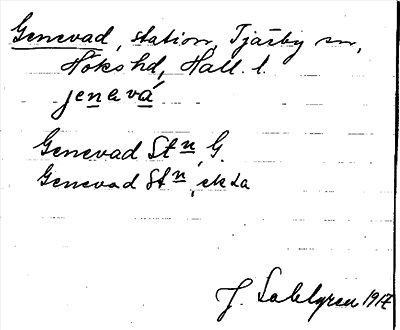 Genevad, station, Tjärby sn,
Höks hd, Hall. l.
jenavá
Genevad Stn, G.
Genevad Stn, ek ka
J. Sahlgren 1917